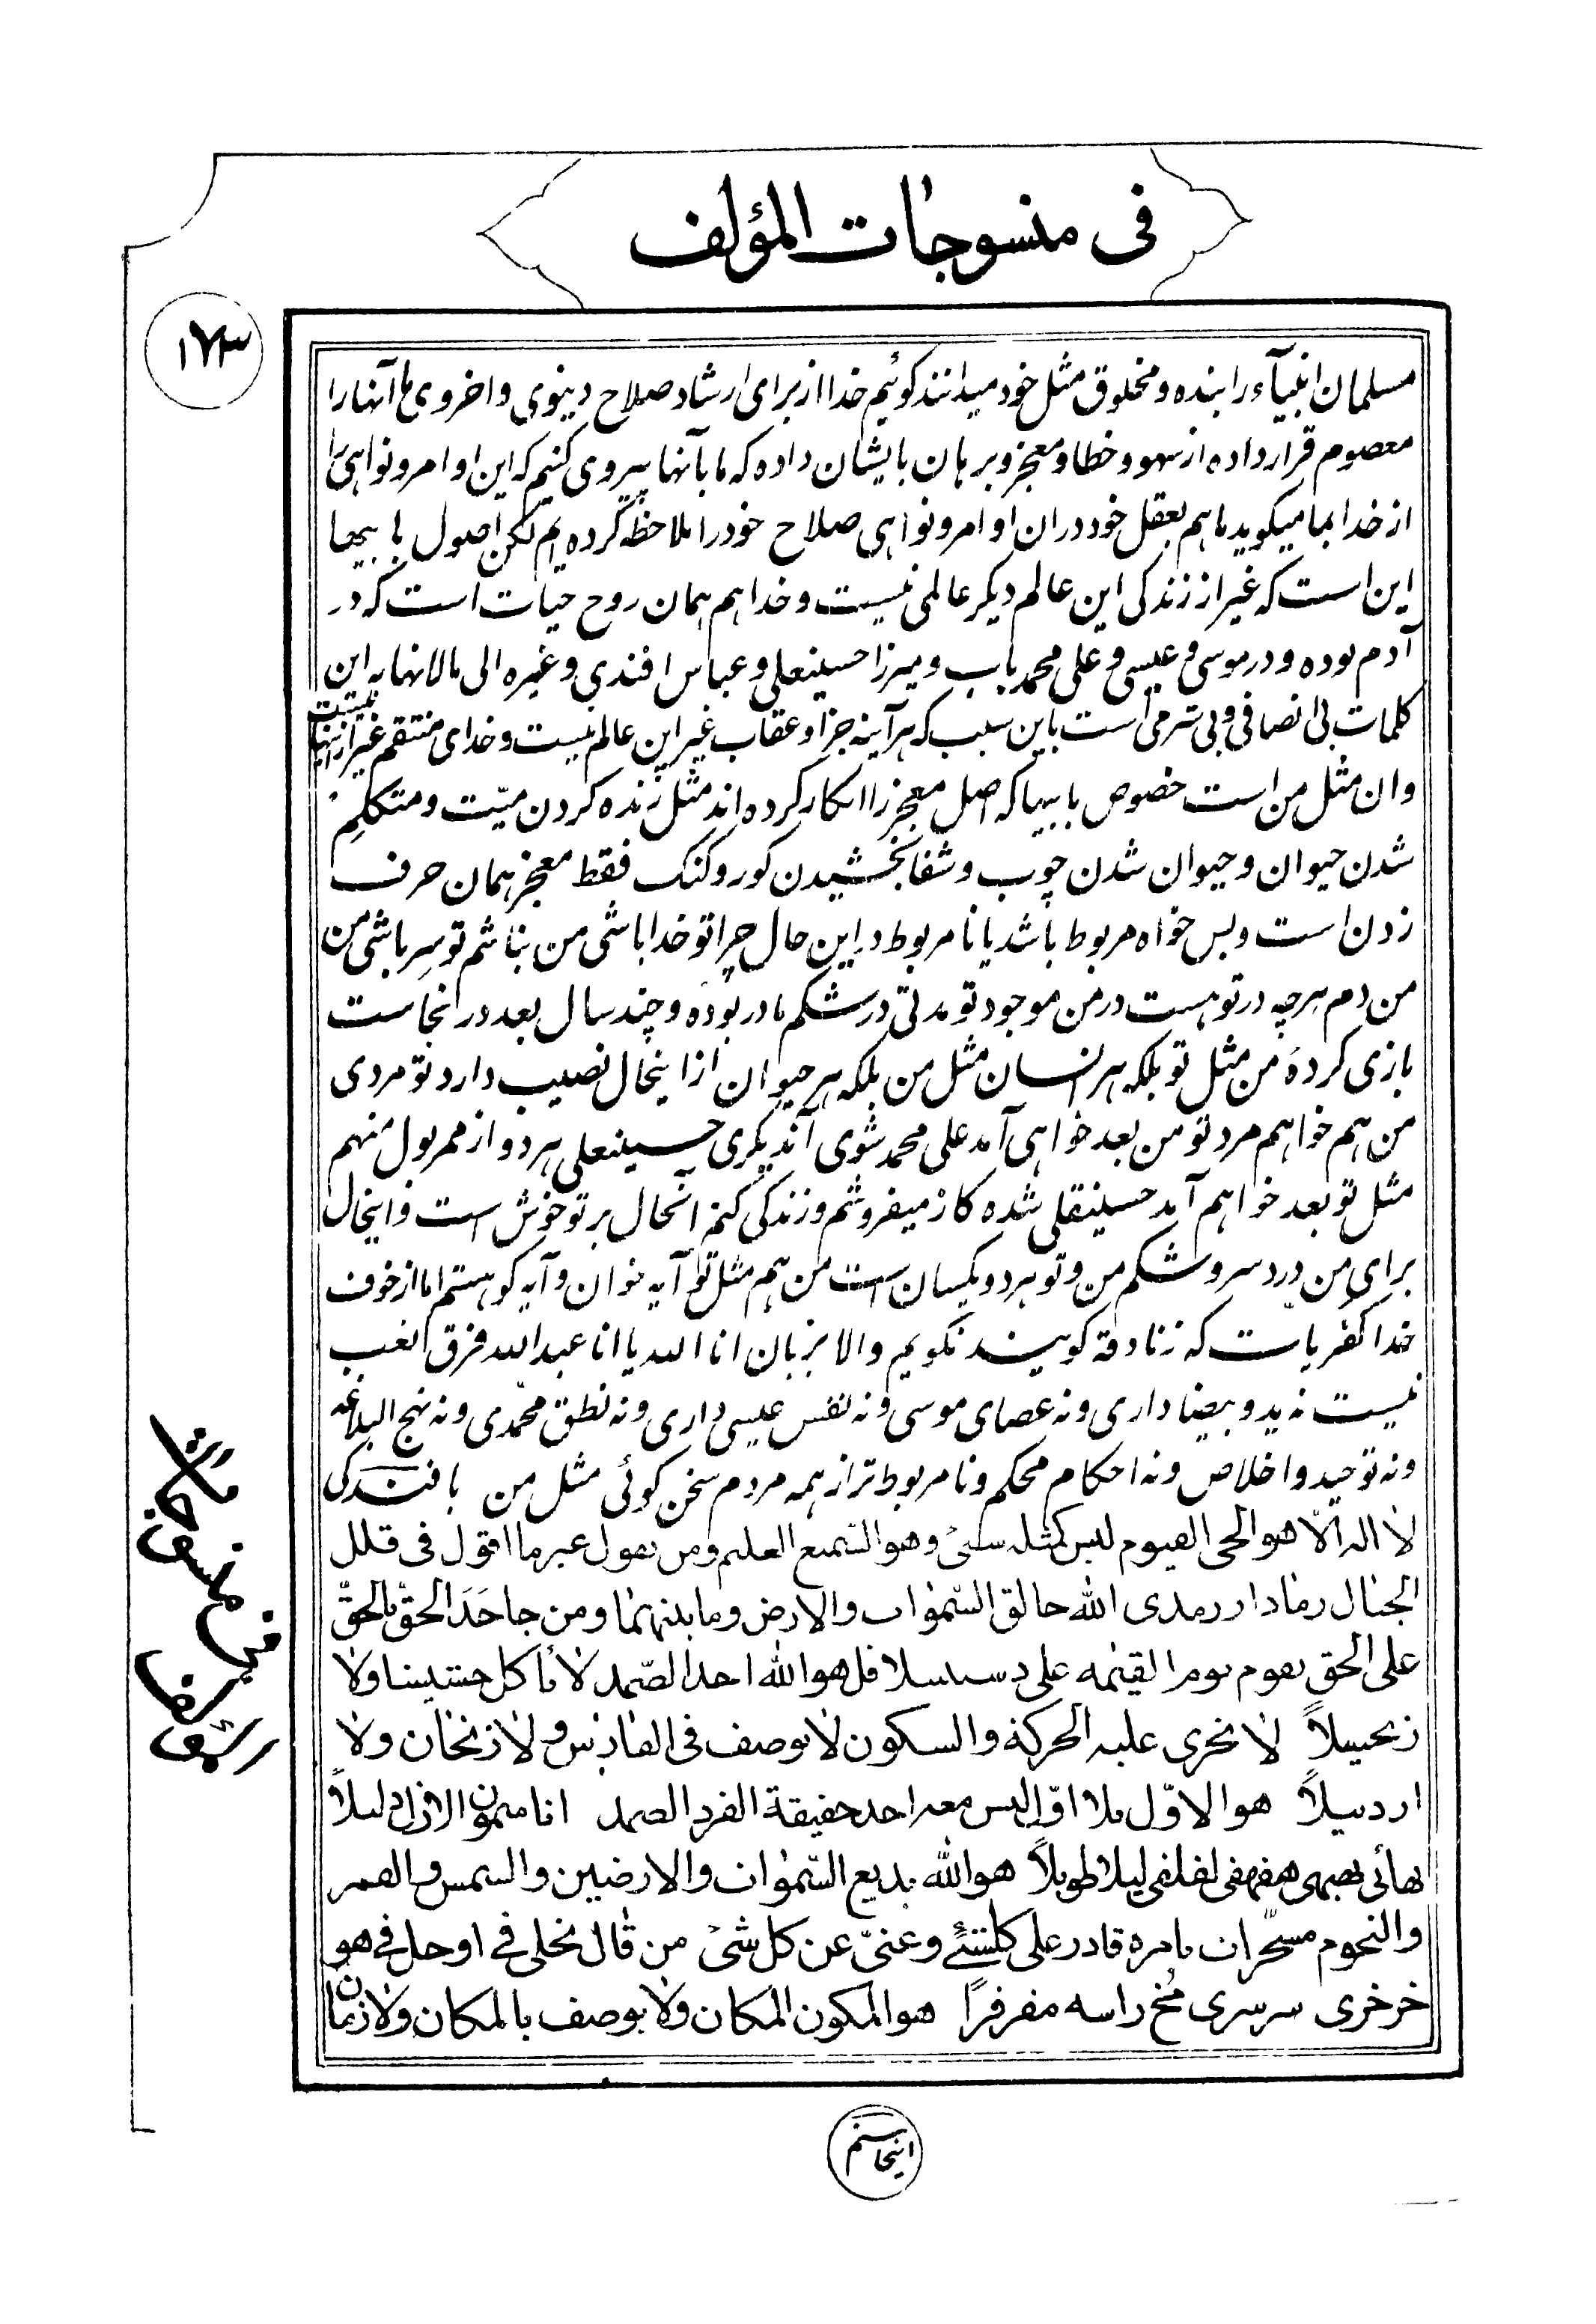 فی منسوجات المؤلف
۱۷۳
مسلمان انبیآء را بنده و مخلوق مثل خود میدانند کوئیم خدا از برای ارشاد صلاح دینوی و اخروی ما آنها را
معصوم قرار داده از سهو و خطا و معجز و برهان بایشان داده که ما بآنها پیروی کنیم که این اوامر و نواهی را
از خدا بما میکوید ما هم بعقل خود دران اوامر و نواهی صلاح خود را ملاحظه کرده ایم لکن اصول بابیها
این است که غیر از زندکی این عالم دیکر عالمی نیست و خدا هم همان روح حیات است که در
آدم بوده و در موسی و عیسی و علی محمد باب و میرزا حسینعلی و عباس افندی و غیره الی مالانهایه این
کلمات بی انصافی و بی شرمی است باین سبب که هر آینه جزا و عقاب غیر این عالم نیست و خدای منتقم غیر از اینها نیست
وان مثل من است خصوص بابیها که اصل معجز را انکار کرده اند مثل زنده کردن میّت و متکلم
شدن حیوان و حیوان شدن چوب و شفا بخشیدن کور و کنک فقط معجز همان حرف
زدن است و بس خواه مربوط باشد یا نا مربوط در این حال چرا تو خدا باشی من نباشم تو سر باشی من
من دم هر چه در تو هست در من موجود تو مدتی در شکم مادر بوده و چند سال بعد در انجاست
بازی کرده من مثل تو بلکه هر انسان مثل من بلکه هر حیوان از اینحال نصیب دارد تو مردی
من هم خواهم مرد تو من بعد خواهی آمد علی محمد شوی آندیکری حسینعلی هر دو از ممر بول منهم
مثل تو بعد خواهم آمد حسینقلی شده کاز میفروشم و زندکی کنم آنحال بر تو خوش است و اینحال
برای من درد سر و شکم من و تو هر دو یکسان است من هم مثل تو آیه خوان و آیه کو هستم اما از خوف
خدا کفریات که زنادقه کویند نکویم و الا بزبان انا الله یا انا عبدالله فرق العب
نیست نه ید و بیضا داری و نه عصای موسی و نه نفس عیسی داری و نه نطق محمّدی و نه نهج البلاغه
و نه توحید و اخلاص و نه احکام محکم و نا مربوط تر از همه مردم سخن کوئی مثل من بافندکی
لا اله الّا هو الحی القیوم لیس کمثله شیء و هو السّمیع العلیم و من یقول غیر ما اقول فی قلل
الجبال رمادار رمدی الله خالق السّموات والارض وما بینهما و من جاحَدَ الحقّ بالحقّ
علی الحق یقوم یوم القیمه علی دسسیلا قل هو الله احد الصّمد لا یأکل حشیشا ولا
زنجبیلاً لا یجری علیه الحرکة والسکون لا یوصف فی الفارس و لا زنخان ولا
اردبیلاً هو الاوّل بلا اوّل لیس معه احد حقیقة الفرد الصمد انا میمون الازل دلیلاً
بهائی یصبهی هفهفی لفلفی لیلا طویلاً هو الله بدیع السّموات والارضیین والشمس والقمر
والنجوم مسخّرات بامره قادر علی کلشئ وغنیّ عن کل شیء من قال تجلی فی او حل فی هو
خرخری سرسری مُخ راسه مفرفرًا هو المکون المکان ولا یوصف بالمکان ولا زمان
فی منسوجات المؤلف